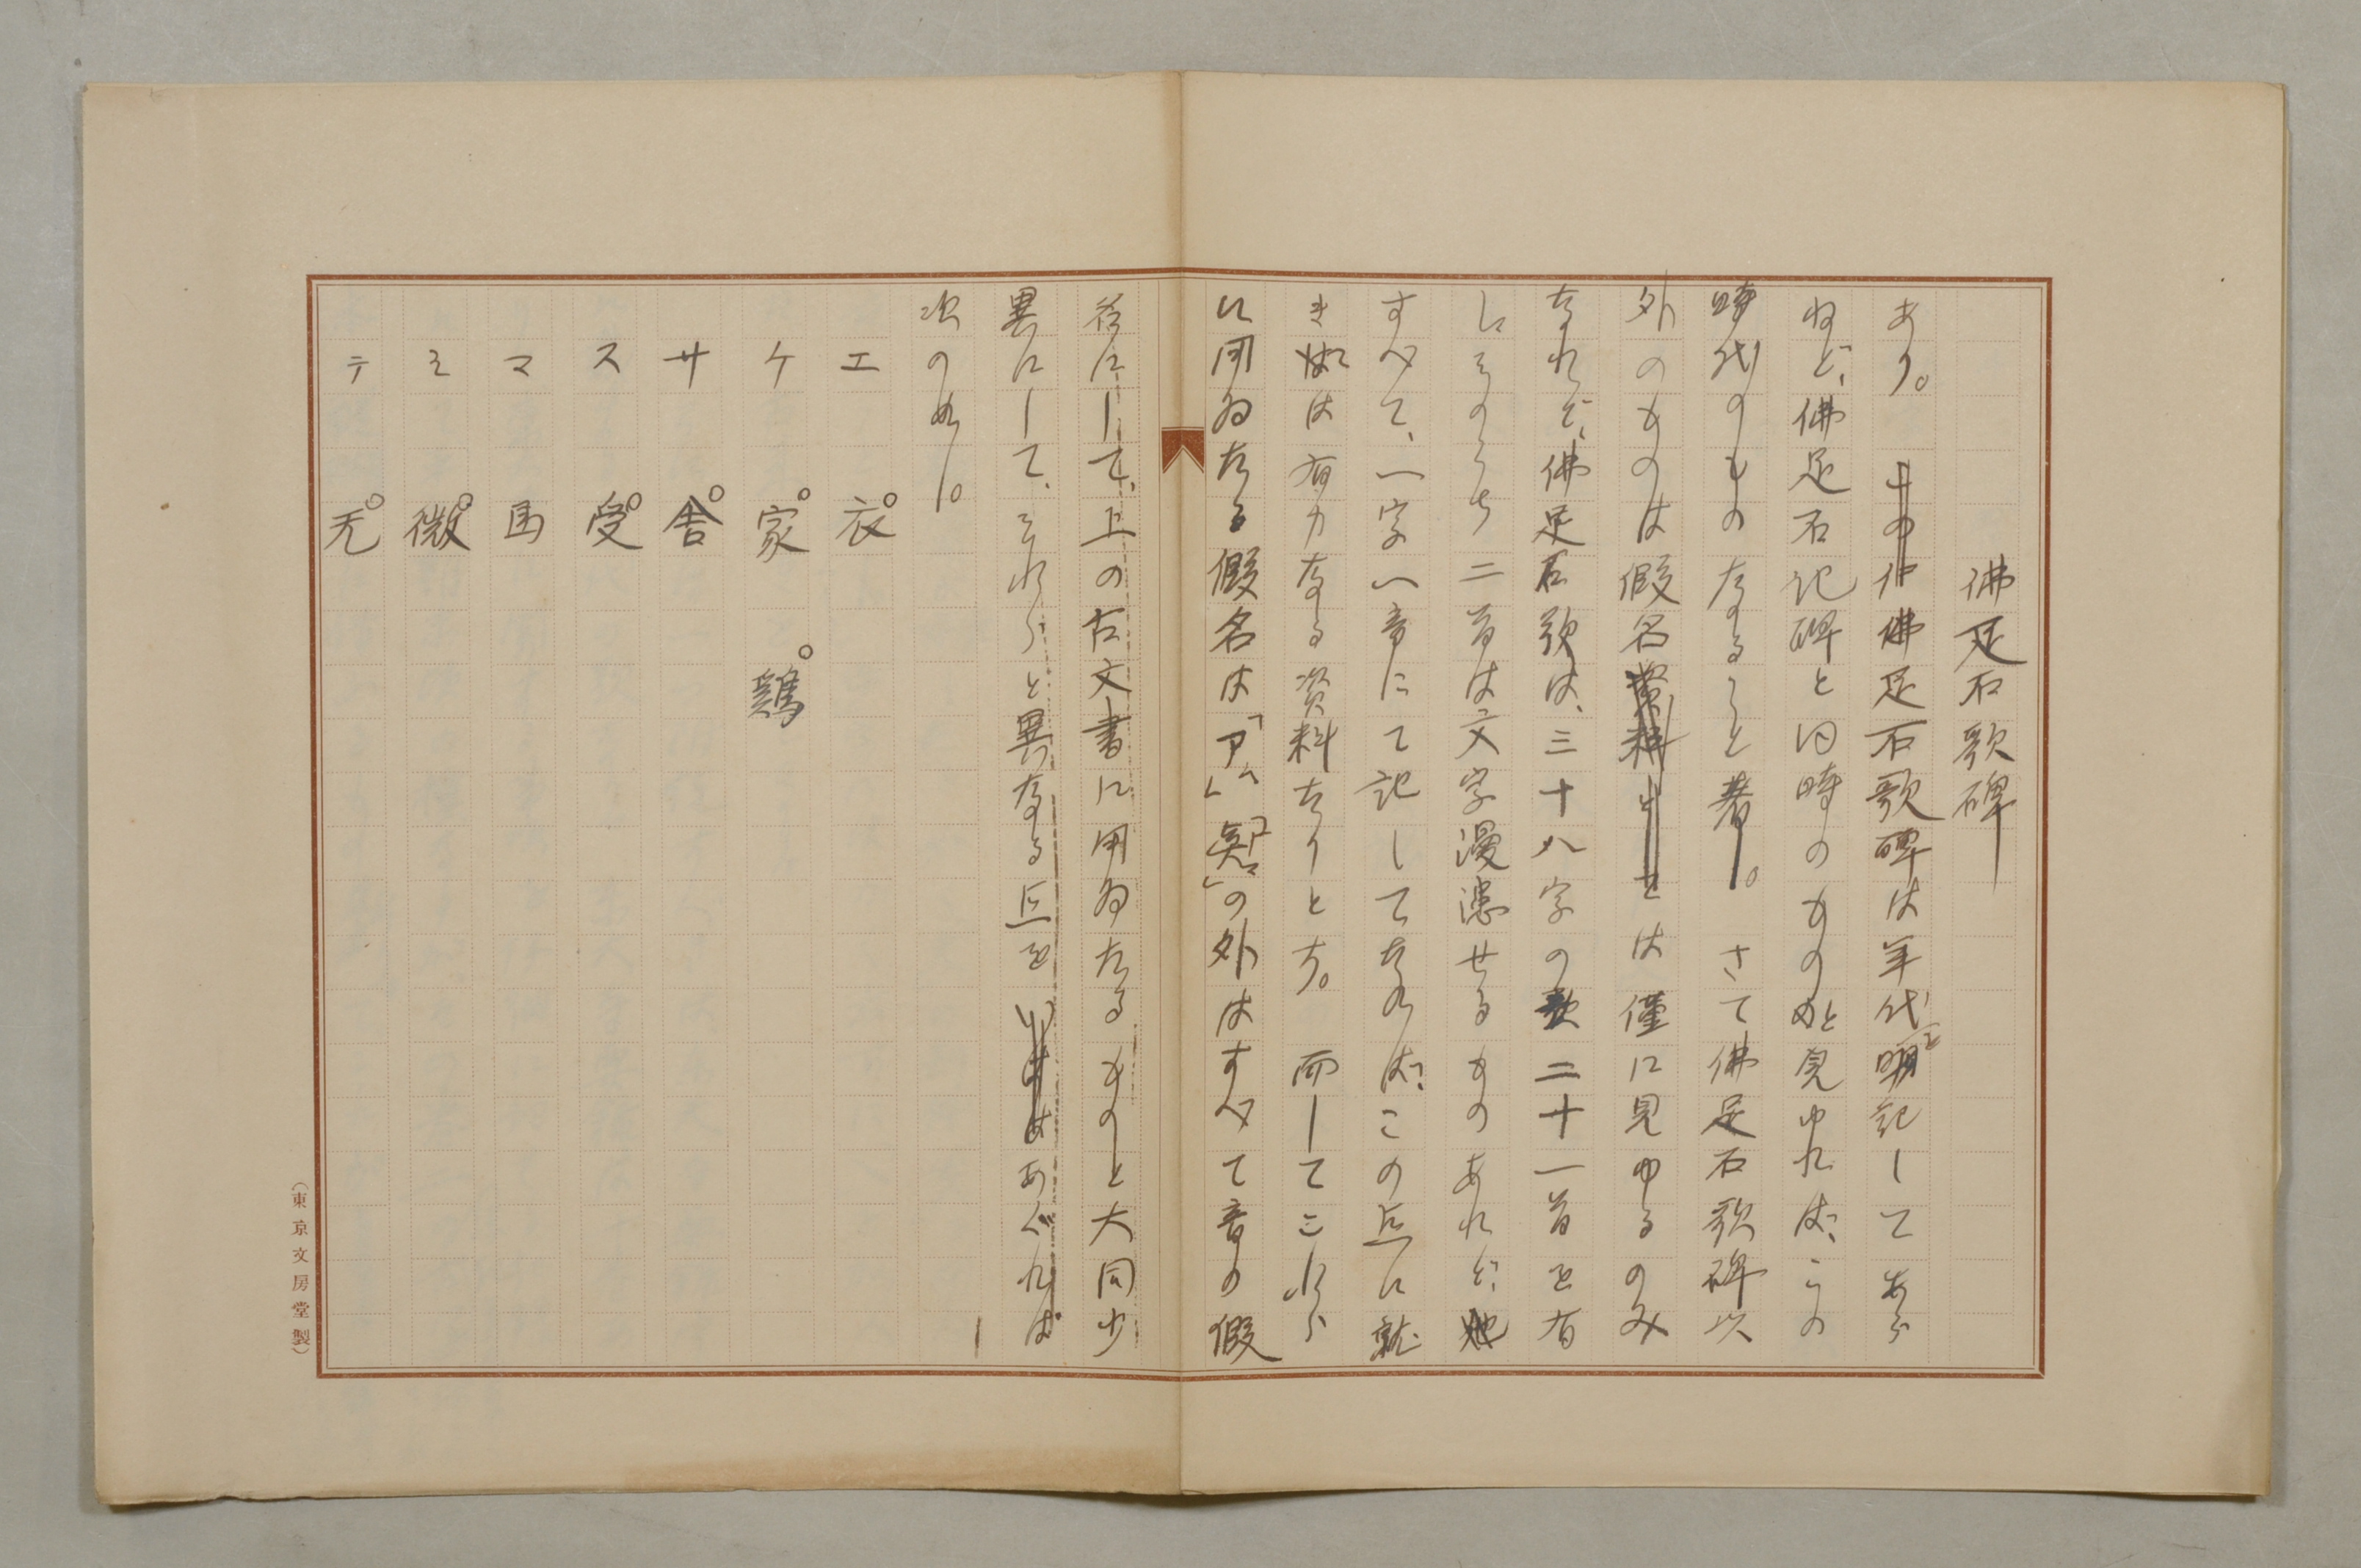 佛足石歌碑
あり。佛足石歌碑は年代を明記してあら
ねど、佛足石記碑と同時のものと見ゆれば、この
時代のものなること著し。さて佛足石歌碑以
外のものは假名は僅に見ゆるのみ
なれど、佛足石歌は、三十八字の歌二十一首を有
し、そのうち二首は文字漫漶せるものあれど、他
すべて、一字一音にて記してあれば、この点に就
きては有力なる資料なりとす。而してこれら
に用ゐたる假名は「ア」「知」の外はすべて音の假
名にして、上の古文書に用ゐたるものと大同少
異にして、それらと異なる点をあぐれば
次の如し。
エ 衣
ケ 家 鶏
サ 舎
ス 受
マ 馬
ミ 微
テ 弖
(東京文房堂製)